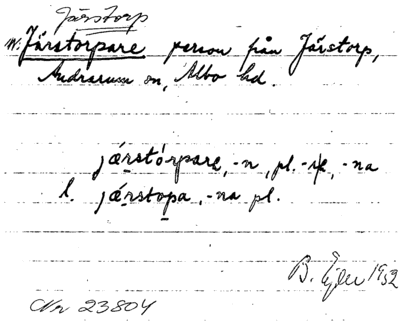 Järstorp
m. Järstorpare person från Järstorp,
Andrarum sn, Albo hd.
jǽrstórpare, -n, pl. -re, -na
l. jǽrstopa, -na pl.
B. Ejder 1932
Nr 23804